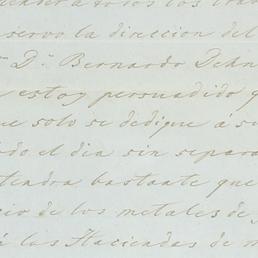 ender a todos los tra
servo la direccion del
D.ⁿ Bernardo Dehn
estoy persuadido q
ue solo se dedique á s
do el dia sin separa
tendra bastante que
cio de los metales de
á las Haciendas de m